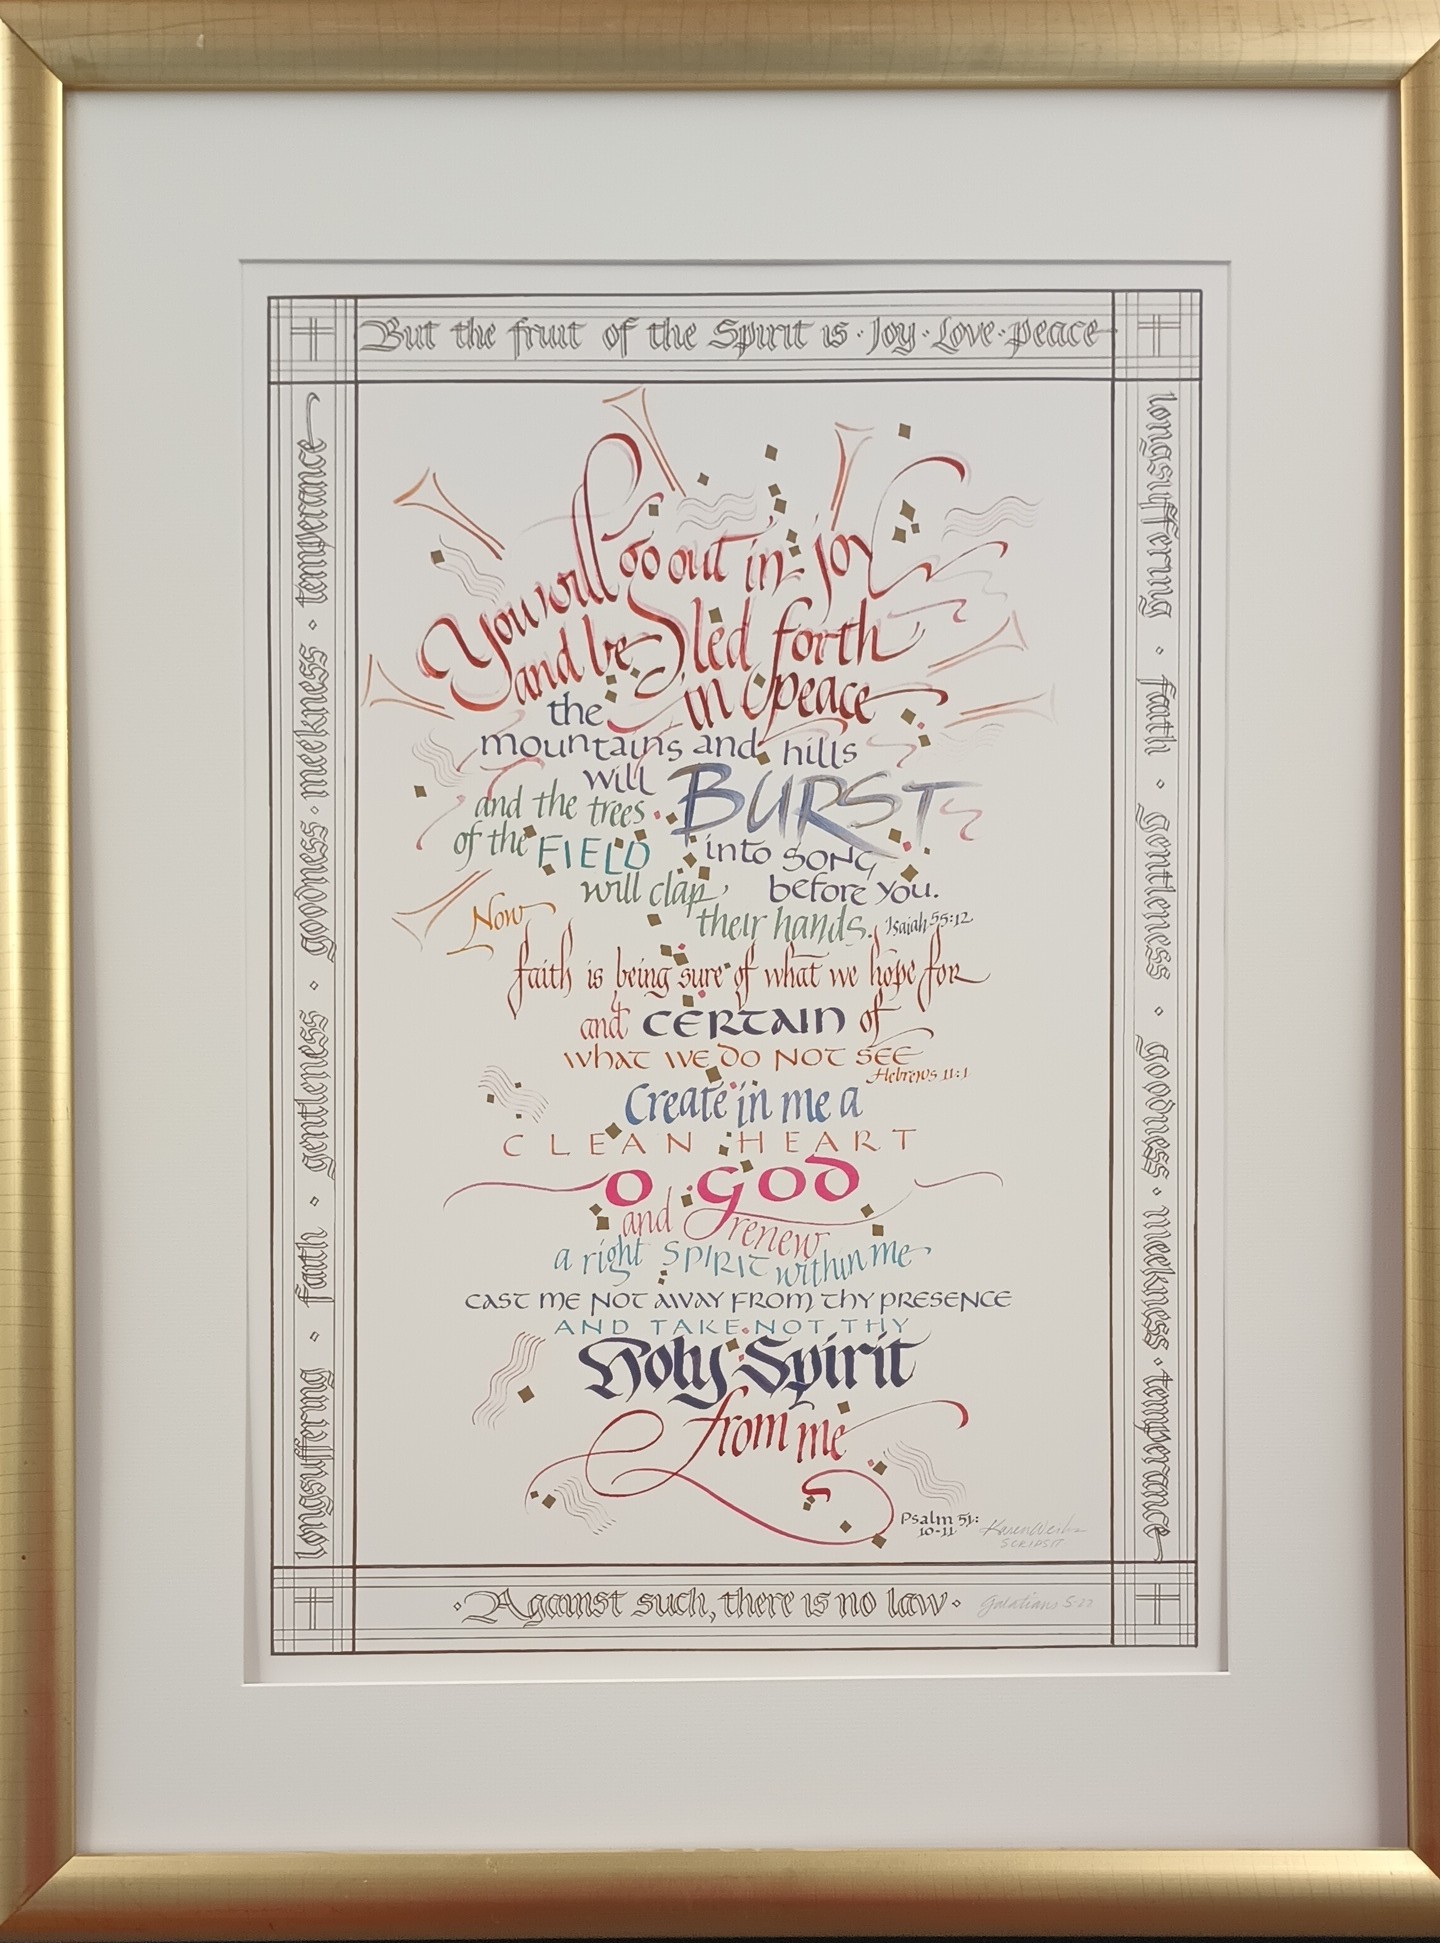 But the fruit of the Spirit is · Joy · Love · peace
longsuffering · faith · gentleness · goodness · meekness · temperance
longsuffering · faith · gentleness · goodness · meekness · temperance
You will go out in joy
and be led forth
in peace
the
mountains and hills
will BURST
into SONG
before you.
and the trees
of the FIELD
will clap
their hands. Isaiah 55:12
Now
faith is being sure of what we hope for
and CERTAIN of
WHAT WE DO NOT SEE
Hebrews 11:1
Create in me a
CLEAN HEART
O GOD
and renew
a right SPIRIT within me
CAST ME NOT AWAY FROM THY PRESENCE
AND TAKE NOT THY
Holy Spirit
from me
Psalm 51:
10-11
Karen
SCRIPSIT
· Against such, there is no law ·
Galatians 5:22